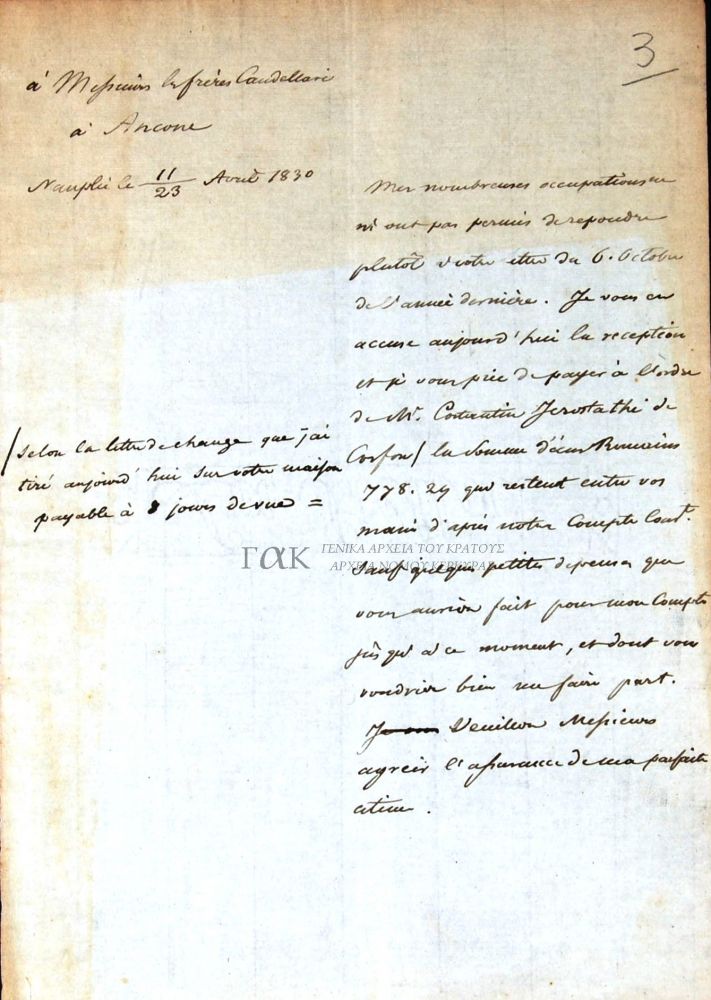 3
à Messieurs les frères Candellari
à Ancone
Nauplie le 11/23 Avril 1830
Mes nombreuses occupations ne
m'ont pas permis de repondre
plutôt à votre lettre du 6. Octobre
de l'année dernière. Je vous en
accuse aujourd'hui la reception
et je vous prie de payer à l'ordre
de Mr. Costantin Jerostathi de
Corfou / la Somme d'écus Romains
/ Selon la lettre de change que j'ai
tiré aujourd'hui sur votre maison
payable à 8 jours de vue =
778.24 qui restent entre vos
mains d'après notre Compte Cour.t
Sauf quelques petites depenses que
ΓΑΚ ΓΕΝΙΚΑ ΑΡΧΕΙΑ ΤΟΥ ΚΡΑΤΟΥΣ
ΑΡΧΕΙΑ ΝΟΜΟΥ ΚΕΡΚΥΡΑΣ
vous auriez fait pour mon Compte
jusqu'à ce moment, et dont vous
voudriez bien me faire part.
Veuillez Messieurs
agreér l'assurance de ma parfaite
estime.